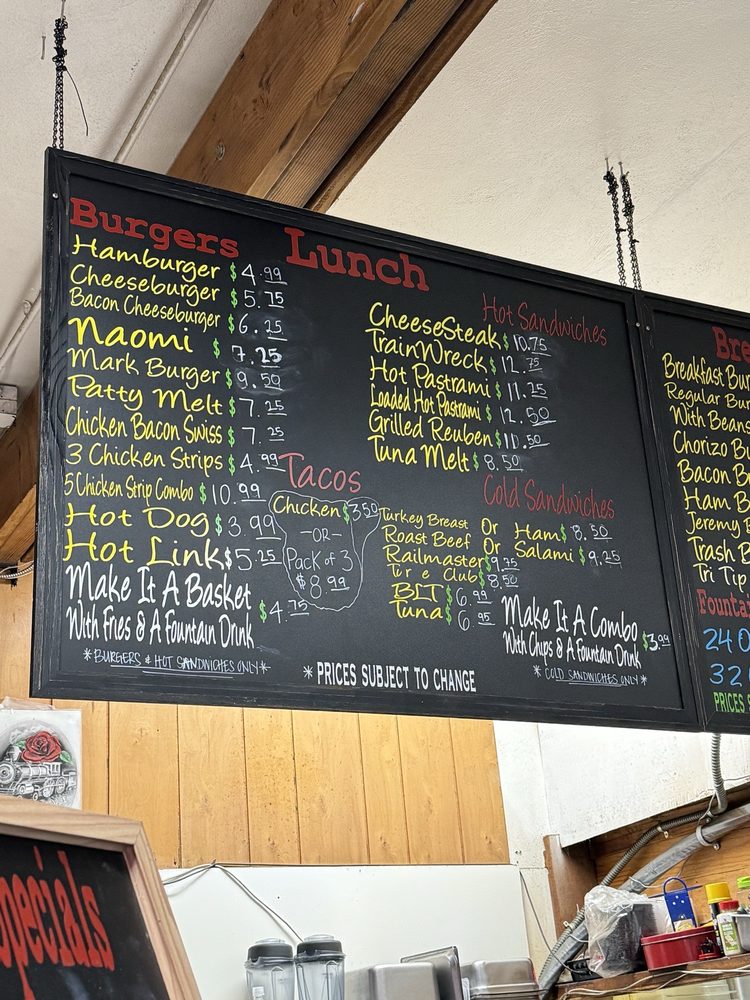 Lunch
Burgers
Hamburger $4.99
Cheeseburger $5.75
Bacon Cheeseburger $6.25
Naomi $7.25
Mark Burger $9.50
Patty Melt $7.25
Chicken Bacon Swiss $7.25
3 Chicken Strips $4.99
5 Chicken Strip Combo $10.99
Hot Dog $3.99
Hot Link $5.25
Make It A Basket
With Fries & A Fountain Drink $4.75
*BURGERS & HOT SANDWICHES ONLY*
Tacos
Chicken $3.50
-OR-
Pack of 3
$8.99
Hot Sandwiches
CheeseSteak $10.75
TrainWreck $12.75
Hot Pastrami $11.25
Loaded Hot Pastrami $12.50
Grilled Reuben $10.50
Tuna Melt $8.50
Cold Sandwiches
Turkey Breast Or Ham $8.50
Roast Beef Or Salami $9.25
Railmaster $9.75
Club $8.50
BLT $6.99
Tuna $6.95
Make It A Combo
With Chips & A Fountain Drink $3.99
*COLD SANDWICHES ONLY*
*PRICES SUBJECT TO CHANGE
Bre
Breakfast Bu
Regular Bur
With Beans
Chorizo Bu
Bacon B
Ham B
Jeremy B
Trash B
Tri Tip
Fountai
24 O
32
PRICES S
pecials